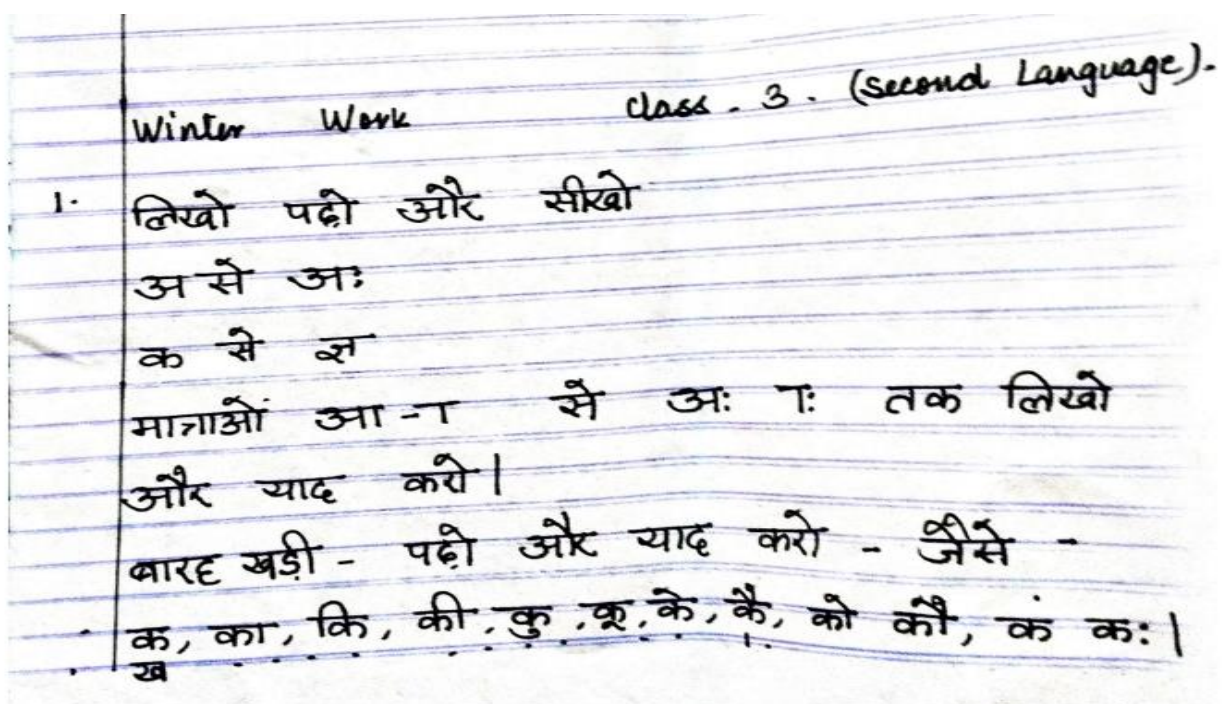 Winter Work Class - 3. (Second Language).
1. लिखो पढ़ो और सीखो
अ से अः
क से ज्ञ
मात्राओं आ - ा से अः ाः तक लिखो
और याद करो।
बारह खड़ी - पढ़ो और याद करो - जैसे -
क, का, कि, की, कु, कू, के, कै, को कौ, कं कः।
ख . . . . . . . . . . ।.